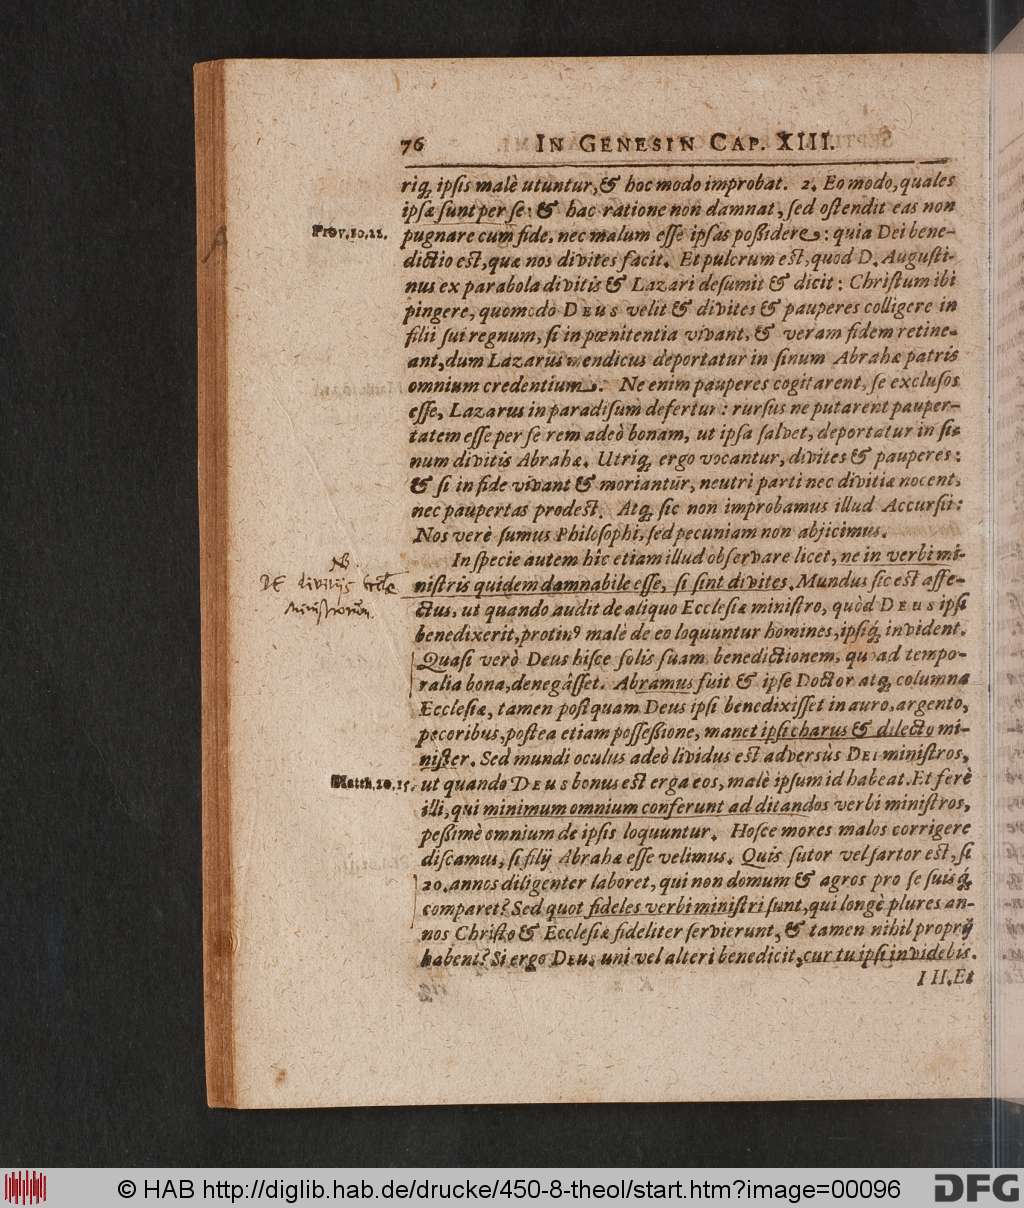 76 IN GENESIN CAP. XIII.
riq́; ipsis malè utuntur, & hoc modo improbat. 2. Eo modo, quales
ipsæ sunt per se: & hac ratione non damnat, sed ostendit eas non
Prov. 10, 22.
pugnare cum fide, nec malum esse ipsas possidere: quia Dei bene-
dictio est, quæ nos divites facit. Et pulcrum est, quod D. Augusti-
nus ex parabola divitis & Lazari desumit & dicit: Christum ibi
pingere, quomodo DEUS velit & divites & pauperes colligere in
filii sui regnum, si in pœnitentia vivant, & veram fidem retine-
ant, dum Lazarus mendicus deportatur in sinum Abrahæ patris
omnium credentium. Ne enim pauperes cogitarent, se exclusos
esse, Lazarus in paradisum defertur: rursus ne putarent pauper-
tatem esse per se rem adeò bonam, ut ipsa salvet, deportatur in si-
num divitis Abrahæ. Utriq́; ergo vocantur, divites & pauperes:
& si in fide vivant & moriantur, neutri parti nec divitiæ nocent,
nec paupertas prodest. Atq́; sic non improbamus illud Accursii:
Nos verè sumus Philosophi, sed pecuniam non abjicimus.
In specie autem hîc etiam illud observare licet, ne in verbi mi-
NB.
De divitijs
Ministrorum.
nistris quidem damnabile esse, si sint divites. Mundus sic est affe-
ctus, ut quando audit de aliquo Ecclesiæ ministro, quòd DEUS ipsi
benedixerit, protin9 malè de eo loquuntur homines, ipsiq́; invident.
Quasi verò Deus hisce solis suam benedictionem, quoad tempo-
ralia bona, denegâsset. Abramus fuit & ipse Doctor atq́; columna
Ecclesiæ, tamen postquam Deus ipsi benedixisset in auro, argento,
pecoribus, postea etiam possessione, manet ipsi charus & dilecto mi-
nister. Sed mundi oculus adeò lividus est adversùs DEI ministros,
Matth. 20, 15.
ut quando DEUS bonus est erga eos, malè ipsum id habeat. Et ferè
illi, qui minimum omnium conferunt ad ditandos verbi ministros,
pessimè omnium de ipsis loquuntur. Hosce mores malos corrigere
discamus, si filij Abrahæ esse velimus. Quis sutor vel sartor est, si
20. annos diligenter laboret, qui non domum & agros pro se suisq́;
comparet? Sed quot fideles verbi ministri sunt, qui longè plures an-
nos Christo & Ecclesiæ fideliter servierunt, & tamen nihil proprij
habent? Si ergo DEUS uni vel alteri benedicit, cur tu ipsi invidebis.
III. Et
© HAB http://diglib.hab.de/drucke/450-8-theol/start.htm?image=00096
DFG